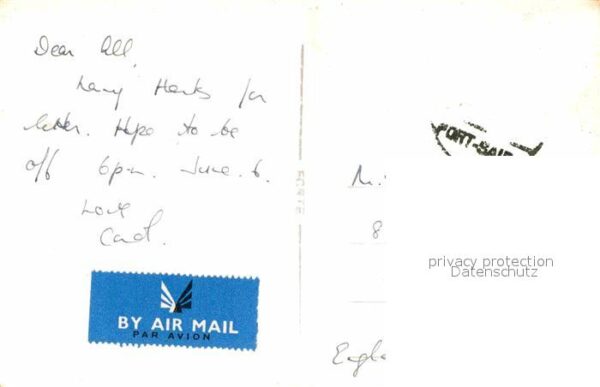 Dear all,
Many thanks for
letter. Hope to be
off 6pm. June. 6.
Love
Carol.
BY AIR MAIL
PAR AVION
PORT-SAID
M
8
privacy protection
Datenschutz
Engla